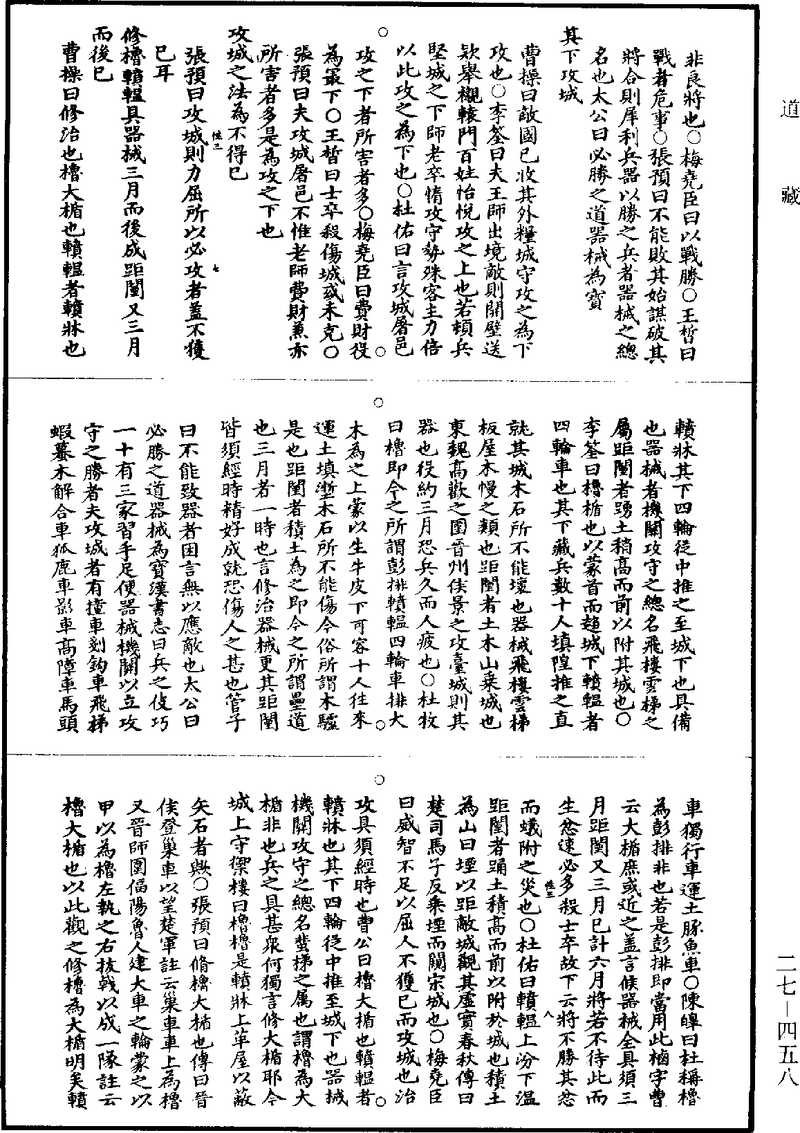 道藏
非良將也○梅堯臣曰以戰勝○王晳曰
戰者危事○張預曰不能敗其始謀破其
將合則犀利兵器以勝之兵者器械之總
名也太公曰必勝之道器械為寶
其下攻城
曹操曰敵國已收其外糧城守攻之為下
攻也○李筌曰夫王師出境敵則開壁送
欵舉櫬轅門百姓怡悅攻之上也若頓兵
堅城之下師老卒惰攻守勢殊客主力倍
以此攻之為下也○杜佑曰言攻城屠邑
攻之下者所害者多○梅堯臣曰費財役
為最下○王晳曰士卒殺傷城或未克○
張預曰夫攻城屠邑不惟老師費財兼亦
所害者多是為攻之下也
攻城之法為不得已
張預曰攻城則力屈所以必攻者蓋不獲
已耳
修櫓轒轀具器械三月而後成距闉又三月
而後已
曹操曰修治也櫓大楯也轒轀者轒牀也
轒牀其下四輪從中推之至城下也具備
也器械者機關攻守之總名飛樓雲梯之
屬距闉者踴土稍高而前以附其城也○
李筌曰櫓楯也以蒙首而趨城下轒轀者
四輪車也其下藏兵數十人填隍推之直
就其城木石所不能壞也器械飛樓雲梯
板屋木幔之類也距闉者土木山乗城也
東魏高歡之圍晉州侯景之攻臺城則其
器也役約三月恐兵久而人疲也○杜牧
曰櫓即今之所謂彭排轒轀四輪車排大
木為之上蒙以生牛皮下可容十人往來
運土填塹木石所不能傷今俗所謂木驢
是也距闉者積土為之即今之所謂壘道
也三月者一時也言修治器械更其距闉
皆須經時精好成就恐傷人之甚也管子
曰不能致器者困言無以應敵也太公曰
必勝之道器械為寶漢書志曰兵之伎巧
一十有三家習手足便器械機關以立攻
守之勝者夫攻城者有撞車剗鈎車飛梯
蝦蟇木解合車狐鹿車影車高障車馬頭
車獨行車運土豚魚車○陳皥曰杜稱櫓
為彭排非也若是彭排即當用此樐字曹
云大楯庶或近之蓋言候器械全具須三
月距闉又三月已計六月將若不待此而
生忿速必多殺士卒故下云將不勝其忿
而蟻附之災也○杜佑曰轒轀上汾下溫
距闉者踊土積高而前以附於城也積土
為山曰堙以距敵城觀其虛實春秋傳曰
楚司馬子反乗堙而闚宋城也○梅堯臣
曰威智不足以屈人不獲已而攻城也治
攻具須經時也曹公曰櫓大楯也轒轀者
轒牀也其下四輪從中推至城下也器械
機關攻守之總名蜚梯之属也謂櫓為大
楯非也兵之具甚衆何獨言修大楯耶今
城上守禦樓曰櫓櫓是轒牀上革屋以蔽
矢石者歟○張預曰脩櫓大楯也傳曰晉
侯登巢車以望楚軍註云巢車車上為櫓
又晉師圍偪陽魯人建大車之輪蒙之以
甲以為櫓左執之右拔戟以成一隊註云
櫓大楯也以此觀之修櫓為大楯明矣轒
二七—四五八